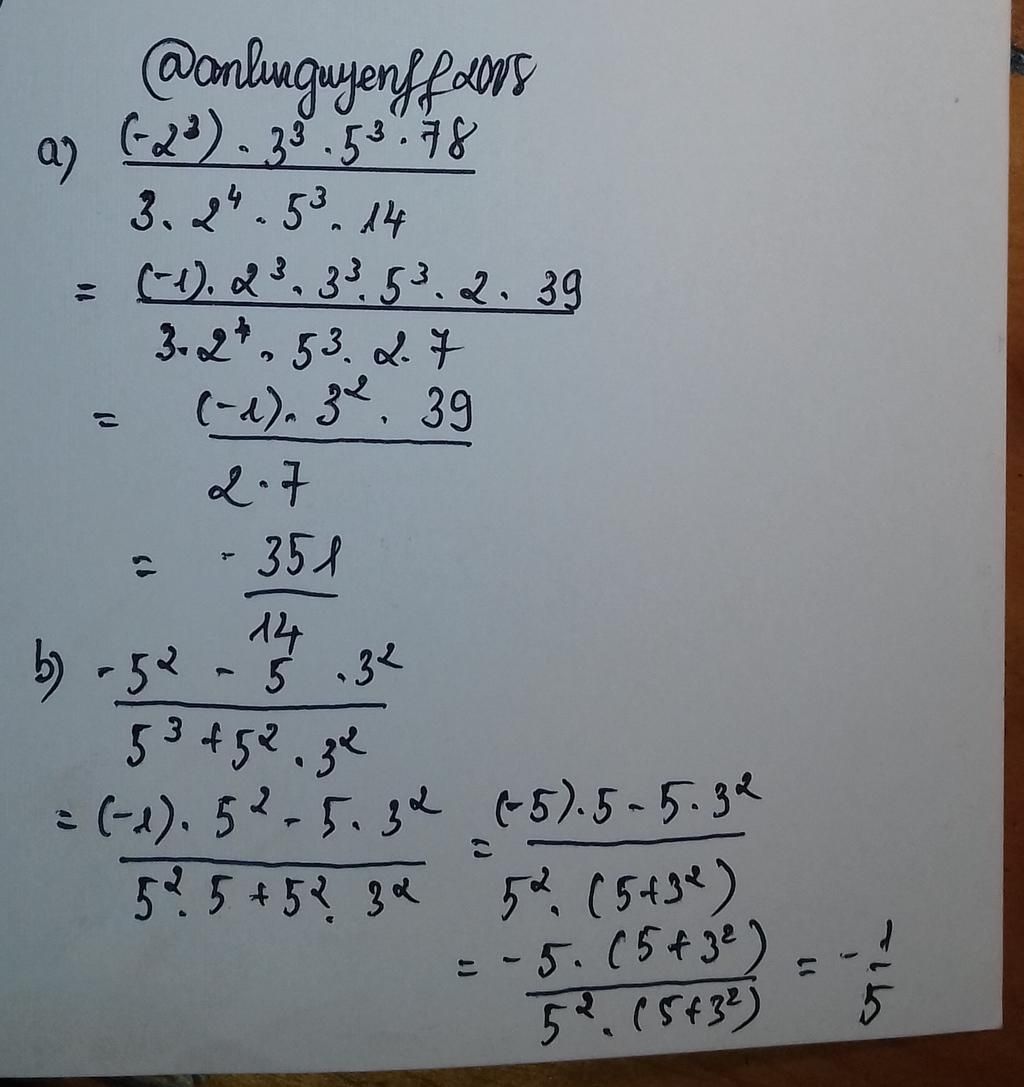 @anhnguyenff2005
a) (-2³) . 3³ . 5³ . 78
3 . 2⁴ . 5³ . 14
= (-1) . 2³ . 3³ . 5³ . 2 . 39
3 . 2⁴ . 5³ . 2 . 7
= (-1) . 3² . 39
2 . 7
= - 351
14
b) - 5² - 5 . 3²
5³ + 5² . 3²
= (-1) . 5² - 5 . 3²
5² . 5 + 5² . 3²
= (-5) . 5 - 5 . 3²
5² . (5 + 3²)
= - 5 . (5 + 3²)
5² . (5 + 3²)
= - 1
5